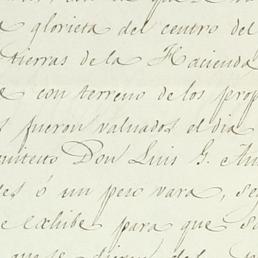 a glorieta del centro del
tierras de la Hacienda
con terreno de los prop
s fueron valuados el dia
quitecto Don Luis G. An
es ó un peso vara, se
e exhibe para que s